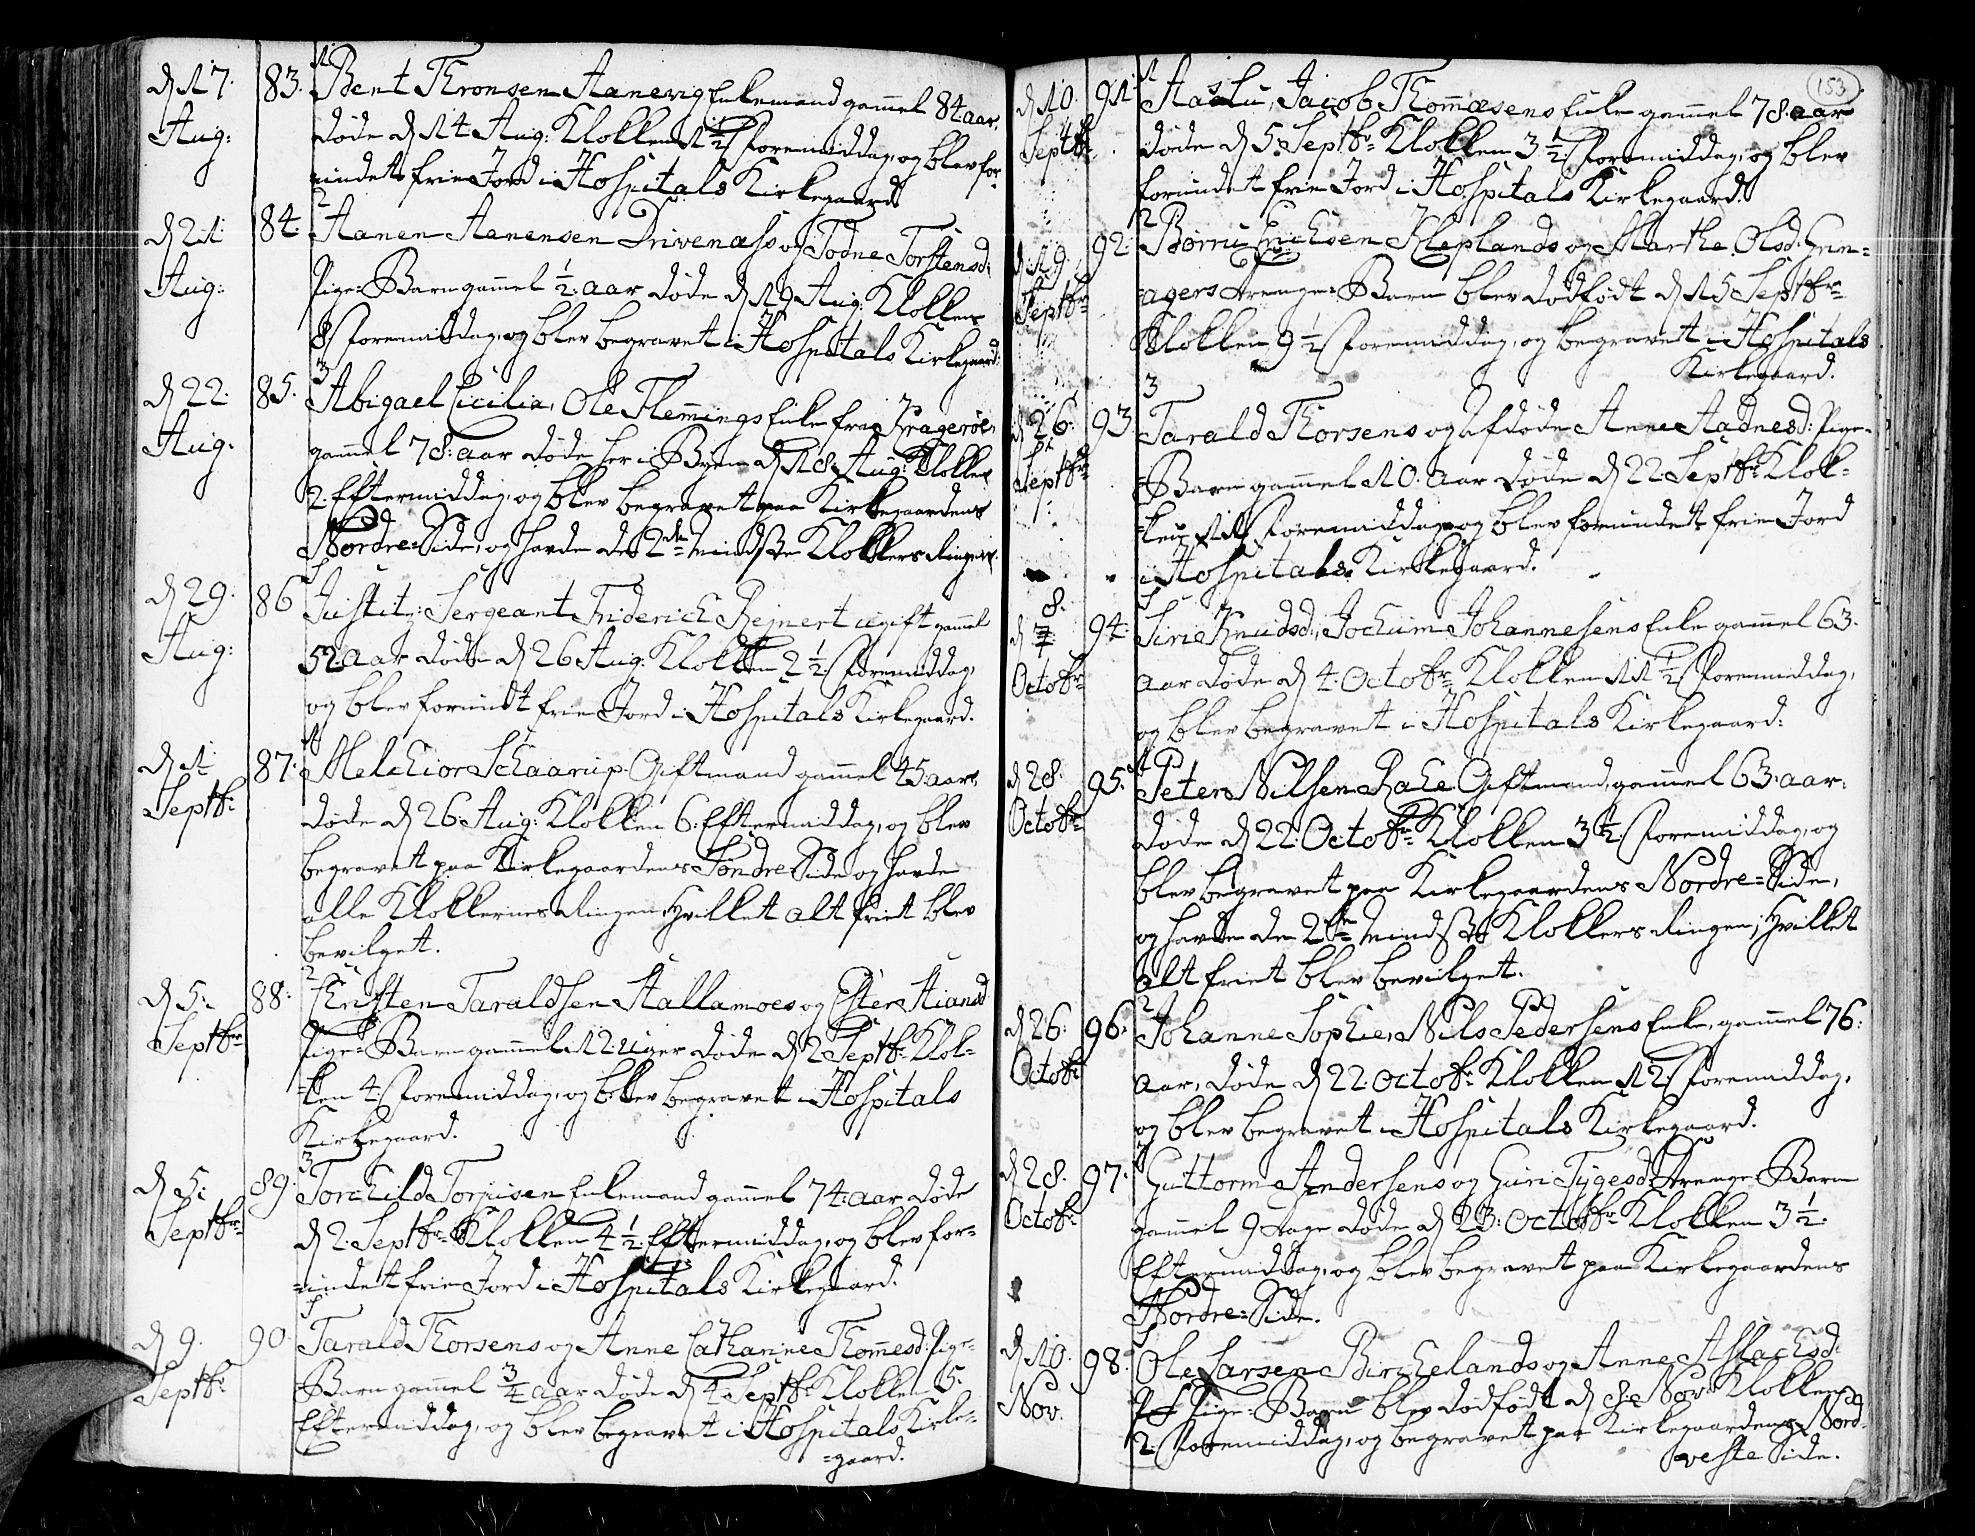 d 17. 83. Bent Thronsen Aanevig Enkemand gammel 84. aar.
Aug: døde d 14 Aug: Klokken 1½ Formiddag, og blev for-
undet frie Jord i Hospitals Kirkegaard
2
d 21 84. Aanen Aanensen Drivenæss og Todne Torstensd:
Aug: Pige-Barn gammel ½ aar døde d 19 Aug: Klokken
8 Formiddag, og blev begravet i Hospitals Kirkegaard.
3
d 22 85. Abigael Cicilia, Ole Flemmings Enke fra Kragerøe,
Aug. gammel 78. aar døde her i Byen d 18. Aug: Klokken
2. Eftermiddag, og blev begravet paa Kirkegaardens
Nordre-Side, og havde de 2de mindste Klokkers Ringen.
d 29. 86 Justitz-Sergeant Friderich Reinert ugift gammel
Aug: 52 aar døde d 26 Aug: Klokken 2½ Formiddag,
og blev forundt frie Jord i Hospitals Kirkegaard.
d 1 87. Melchior Schaarup Giftmand gammel 45 aar,
Septbr: døde d 26 Aug: Klokken 6. Eftermiddag, og blev
begravet paa Kirkegaardens Søndre Side og havde
alle Klokkernes Ringen, hvilket alt friet blev
bevilget.
2
d 5. 88. Christen Taraldsen Hallamoes og Ester
Septbr: Pige-Barn gammel 12. uger døde d 2 Septbr: Klok-
-ken 4 Formiddag, og blev begravet i Hospitals
Kirkegaard.
3
d 5. 89. Torchild Torjusen Enkemand gammel 74. aar døde
Septbr: d 2. Septbr: Klokken 4½ Eftermiddag, og blev for-
-undet frie Jord i Hospitals Kirkegaard.
d 9. 90. Tarald Thorsens og Anne Catharine Thommesd: Pige-
Septbr: Barn gammel ¾ aar døde d 4. Septbr: Klokken 5.
Eftermiddag, og blev begravet i Hospitals Kirke-
-gaard.
153
d 10. 91. Aaslu, Jacob Thommæsens Enke gammel 78. aar
Septbr: døde d 5. Septbr: Klokken 3½ Formiddag, og blev
forundet frie Jord i Hospitals Kirkegaard.
2
d 19. 92. Børru Erichsen Kleplands og Marthe Olsd: Gren-
Septbr: agers Drenge-Barn blev dødfødt d 15 Septbr:
Klokken 9½ Formiddag, og begravet i Hospitals
Kirkegaard.
3
d 26. 93 Tarald Thorsens og afdøde Anne Aadnesd: Pige-
Septbr: -Barn gammel 10. aar døde d 22. Septbr: Klok-
-ken 11 Formiddag, og blev forundet frie Jord
i Hospitals Kirkegaard.
8.
d 7 94. Sirie Knudsd:, Jochum Johannesens Enke gammel 63.
Octobr: aar døde d 4. Octobr: Klokken 11½ Formiddag,
og blev begravet i Hospitals Kirkegaard.
d 28. 95. Peter Nilsen Giftmand, gammel 63. aar.
Octobr: døde d 22. Octobr: Klokken 3½. Formiddag, og
blev begravet paa Kirkegaardens Nordre-Side,
og havde de 2de mindste Klokkers Ringen, hvillet
alt friet blev bevilget.
2
d 26. 96. Johanne Sophie, Nils Pedersens Enke, gammel 76.
Octobr: aar, døde d 22. Octobr: Klokken 12 Formiddag,
og blev begravet i Hospitals Kirkegaard.
3
d 28. 97. Guttorm Andersens og Guri Tygesd: Drenge-Barn
Octobr: gammel 9 Dage døde d 23. Octobr: Klokken 3½.
Eftermiddag, og blev begravet paa Kirkegaardens
Nordre-Side.
d 10. 98. Ole Larsen Birchelands og Anne Aslachsd:
Nov: Pige-Barn blev dødfødt d 8. Nov: Klokken
2. Formiddag, og begravet paa Kirkegaardens Nord-
veste Side.